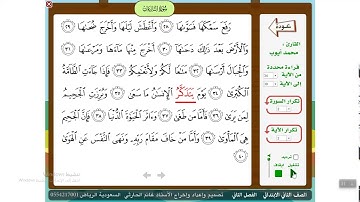 سُورَةُ النَّازِعَاتِ
رَفَعَ سَمْكَهَا فَسَوَّىٰهَا ٢٨ وَأَغْطَشَ لَيْلَهَا وَأَخْرَجَ ضُحَىٰهَا ٢٩
وَٱلْأَرْضَ بَعْدَ ذَٰلِكَ دَحَىٰهَا ٣٠ أَخْرَجَ مِنْهَا مَآءَهَا وَمَرْعَىٰهَا ٣١
وَٱلْجِبَالَ أَرْسَىٰهَا ٣٢ مَتَٰعًا لَّكُمْ وَلِأَنْعَٰمِكُمْ ٣٣ فَإِذَا جَآءَتِ ٱلطَّآمَّةُ
ٱلْكُبْرَىٰ ٣٤ يَوْمَ يَتَذَكَّرُ ٱلْإِنسَٰنُ مَا سَعَىٰ ٣٥ وَبُرِّزَتِ ٱلْجَحِيمُ
لِمَن يَرَىٰ ٣٦ فَأَمَّا مَن طَغَىٰ ٣٧ وَءَاثَرَ ٱلْحَيَوٰةَ ٱلدُّنْيَا ٣٨ فَإِنَّ ٱلْجَحِيمَ
هِىَ ٱلْمَأْوَىٰ ٣٩ وَأَمَّا مَنْ خَافَ مَقَامَ رَبِّهِۦ وَنَهَى ٱلنَّفْسَ عَنِ ٱلْهَوَىٰ
٤٠
عودة
القارئ:
محمد أيوب
قراءة محددة
من الآية
إلى الآية
تكرار السورة
تكرار الآية
الصف الثاني الابتدائي الفصل الثاني تصميم وإعداد وإخراج الأستاذ غانم الحارثي السعودية الرياض 0554217001